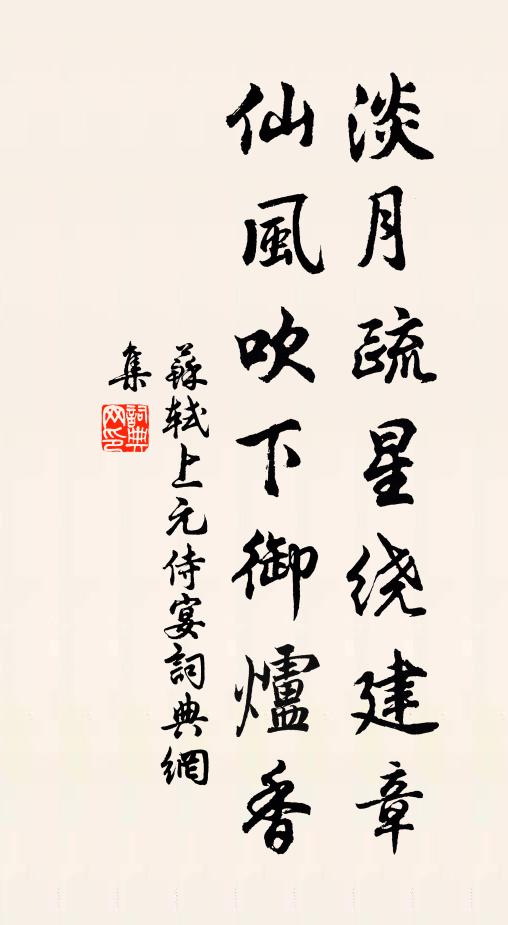 淡月疏星绕建章
仙風吹下御爐香
蘇軾上元侍宴詞典網
集
詞典网印